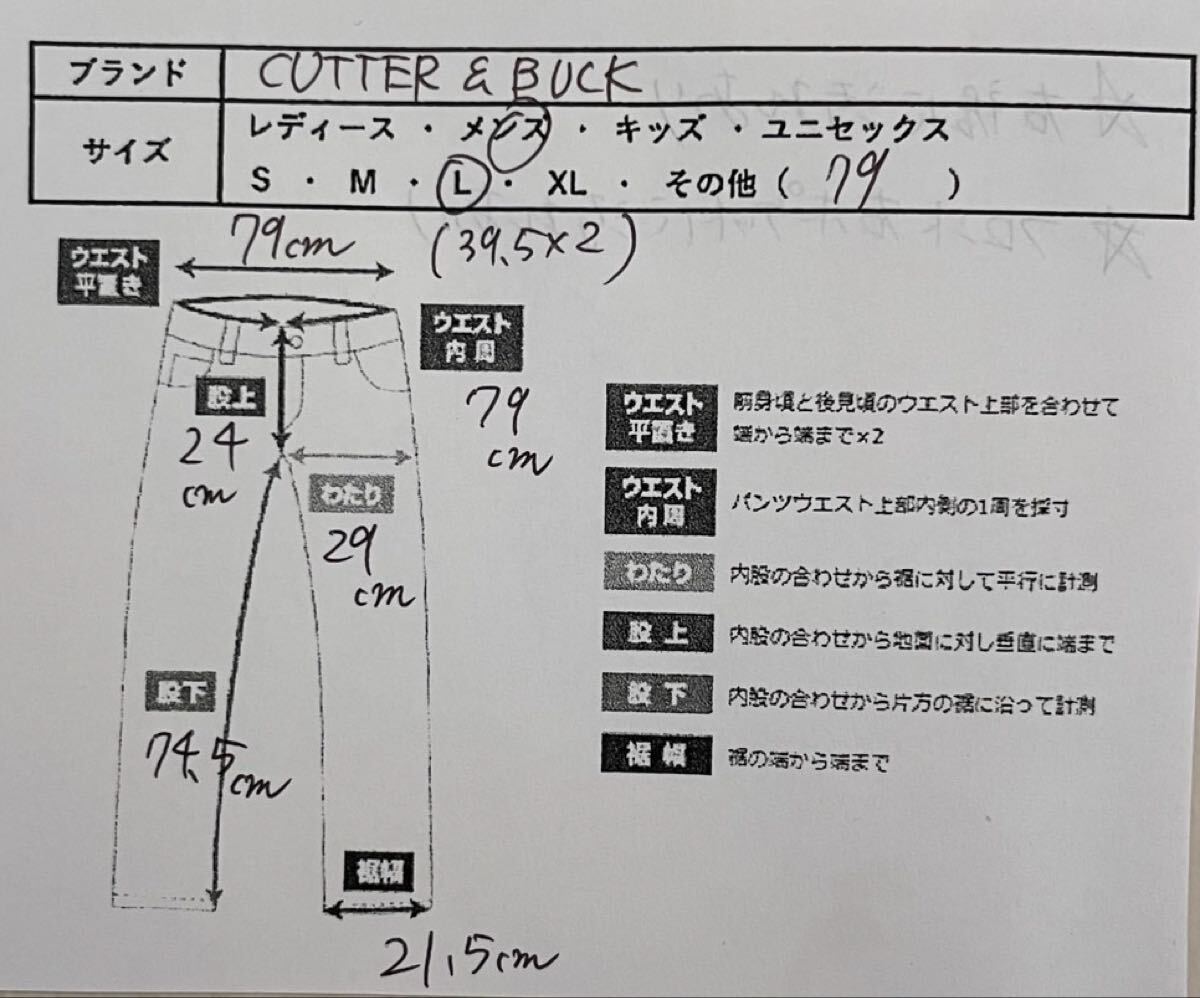 ブランド CUTTER & BUCK
サイズ レディース ・ メンズ ・ キッズ ・ ユニセックス
S ・ M ・ L ・ XL ・ その他 ( 79 )
79cm (39.5×2)
ウエスト
平置き
ウエスト
内周
79
cm
股上
24
cm
わたり
29
cm
股下
74.5cm
裾幅
21.5cm
ウエスト
平置き
前身頃と後見頃のウエスト上部を合わせて
端から端まで×2
ウエスト
内周
パンツウエスト上部内側の1周を採寸
わたり 内股の合わせから裾に対して平行に計測
股上 内股の合わせから地面に対し垂直に端まで
股下 内股の合わせから片方の裾に沿って計測
裾幅 裾の端から端まで